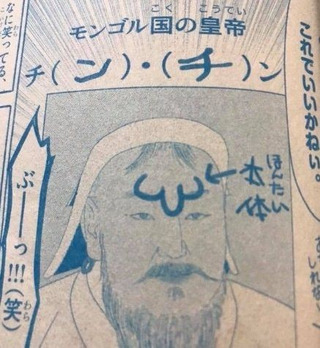 これでいいかねい。
モンゴル国の皇帝
こく こうてい
チ(ン)・(チ)ン
ほんたい
本体
ぶーっ!!!(笑)
わら
なに笑ってる、